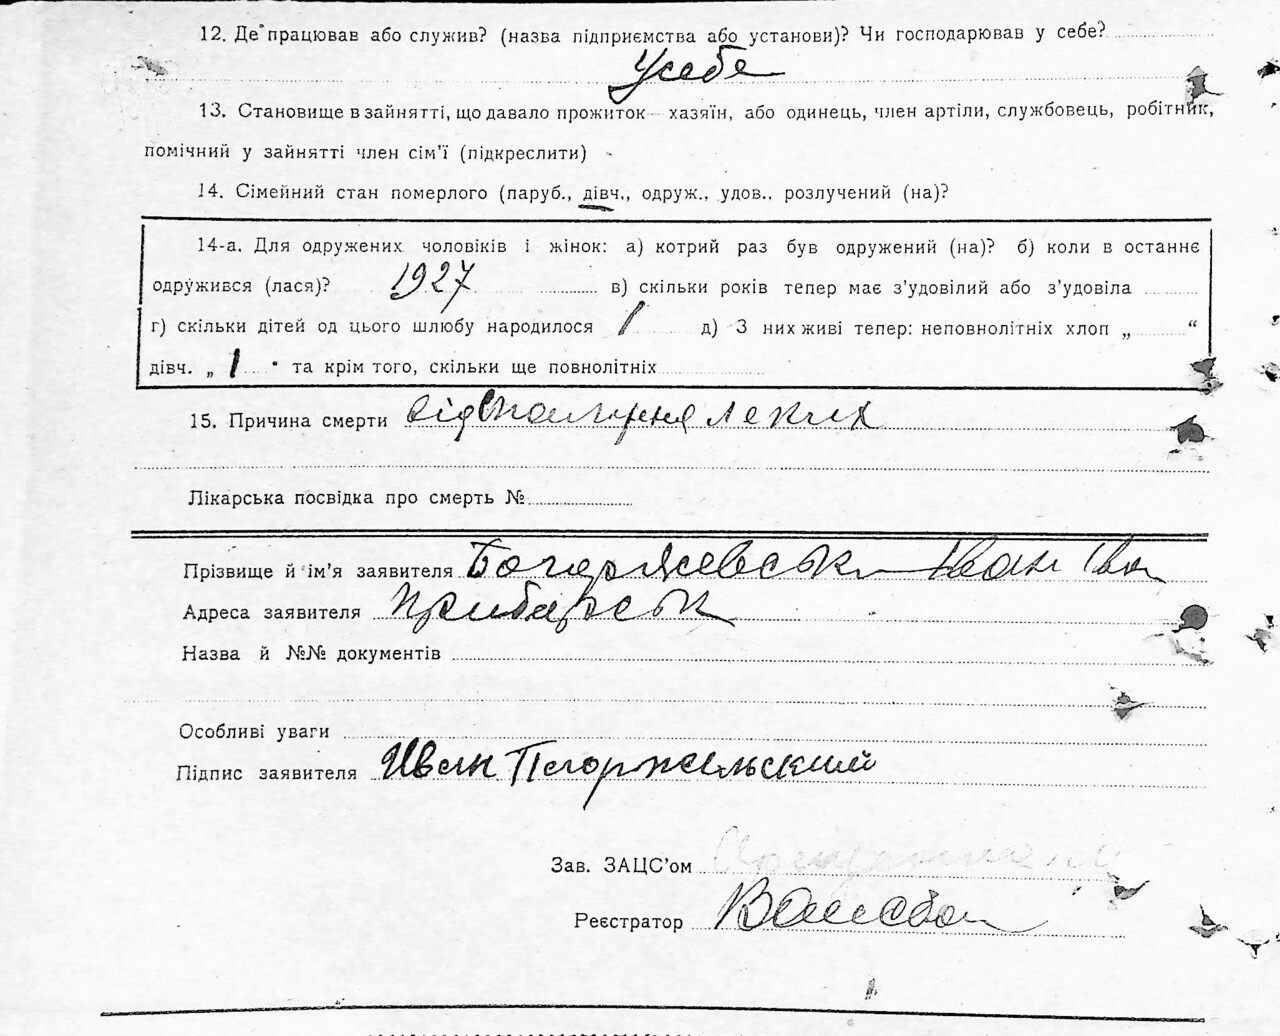 12. Де працював або служив? (назва підприємства або установи)? Чи господарював у себе?
Усебе
13. Становище в зайнятті, що давало прожиток — хазяїн, або одинець, член артілі, службовець, робітник,
помічний у зайнятті член сім'ї (підкреслити)
14. Сімейний стан померлого (паруб., дівч., одруж., удов., розлучений (на)?
14-а. Для одружених чоловіків і жінок: а) котрий раз був одружений (на)? б) коли в останнє
одружився (лася)? 1927 в) скільки років тепер має з'удовілий або з'удовіла
г) скільки дітей од цього шлюбу народилося 1 д) З них живі тепер: неповнолітніх хлоп „ “
дівч. „ 1 " та крім того, скільки ще повнолітніх
15. Причина смерти від легких
Лікарська посвідка про смерть №
Прізвище й ім'я заявителя Іван Іван
Адреса заявителя
Назва й №№ документів
Особливі уваги
Підпис заявителя Иван Погоржельский
Зав. ЗАЦС'ом
Реєстратор